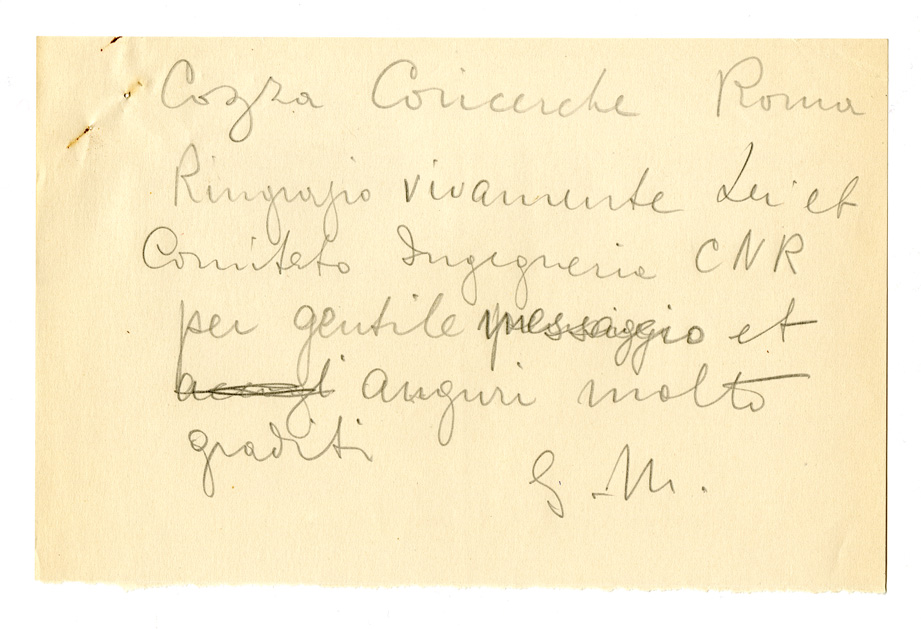 Cozza Coricerche Roma
Ringrazio vivamente Lei et
Comitato Ingegneria CNR
per gentile messaggio et
auguri molto
graditi
G. M.